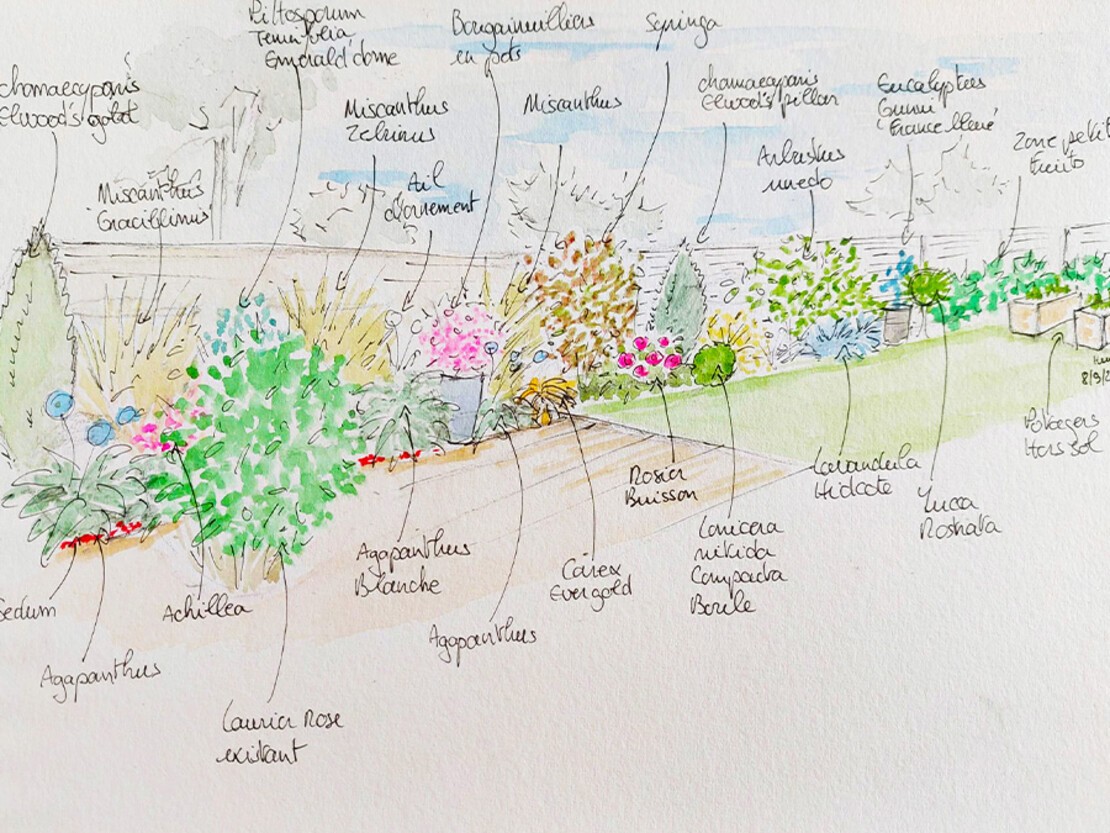 Pittosporum
Tenuifolia
Emerald dome
Bougainvilliers
en pots
Syringa
chamaecyparis
Elwood's gold
Miscanthus
Zebrinus
Miscanthus
chamaecyparis
Elwood's pillar
Eucalyptus
Gunni
France bleue
Zone petit
Fruits
Arbustus
unedo
Miscanthus
Gracillimus
Ail
d'ornement
8/9/2
Potagers
Hors sol
Rosier
Buisson
Lavandula
Hidcote
Yucca
Rostrata
Lonicera
nitida
Compacta
Boule
Carex
Evergold
Agapanthus
Blanche
Agapanthus
Sedum
Achillea
Agapanthus
Laurier Rose
existant